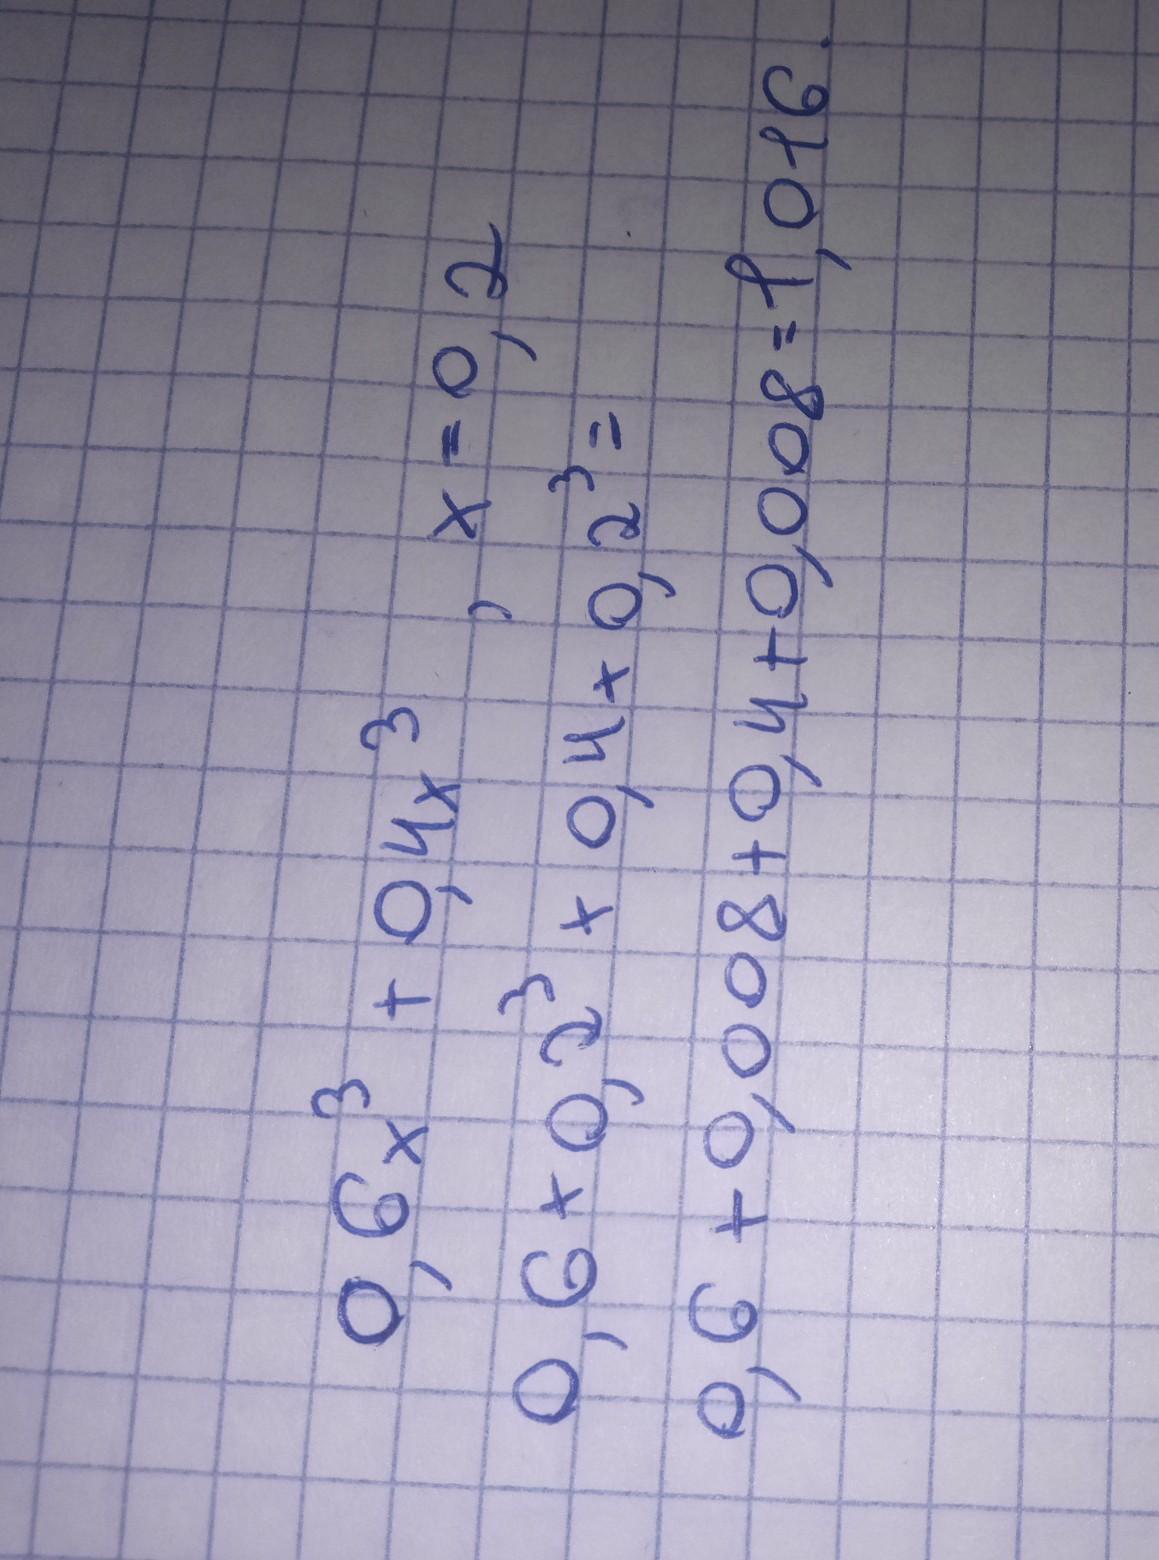 0,6x³ + 0,4x³ , x = 0,2
0,6 × 0,2³ × 0,4 × 0,2³ =
0,6 + 0,008 + 0,4 + 0,008 = 1,016.